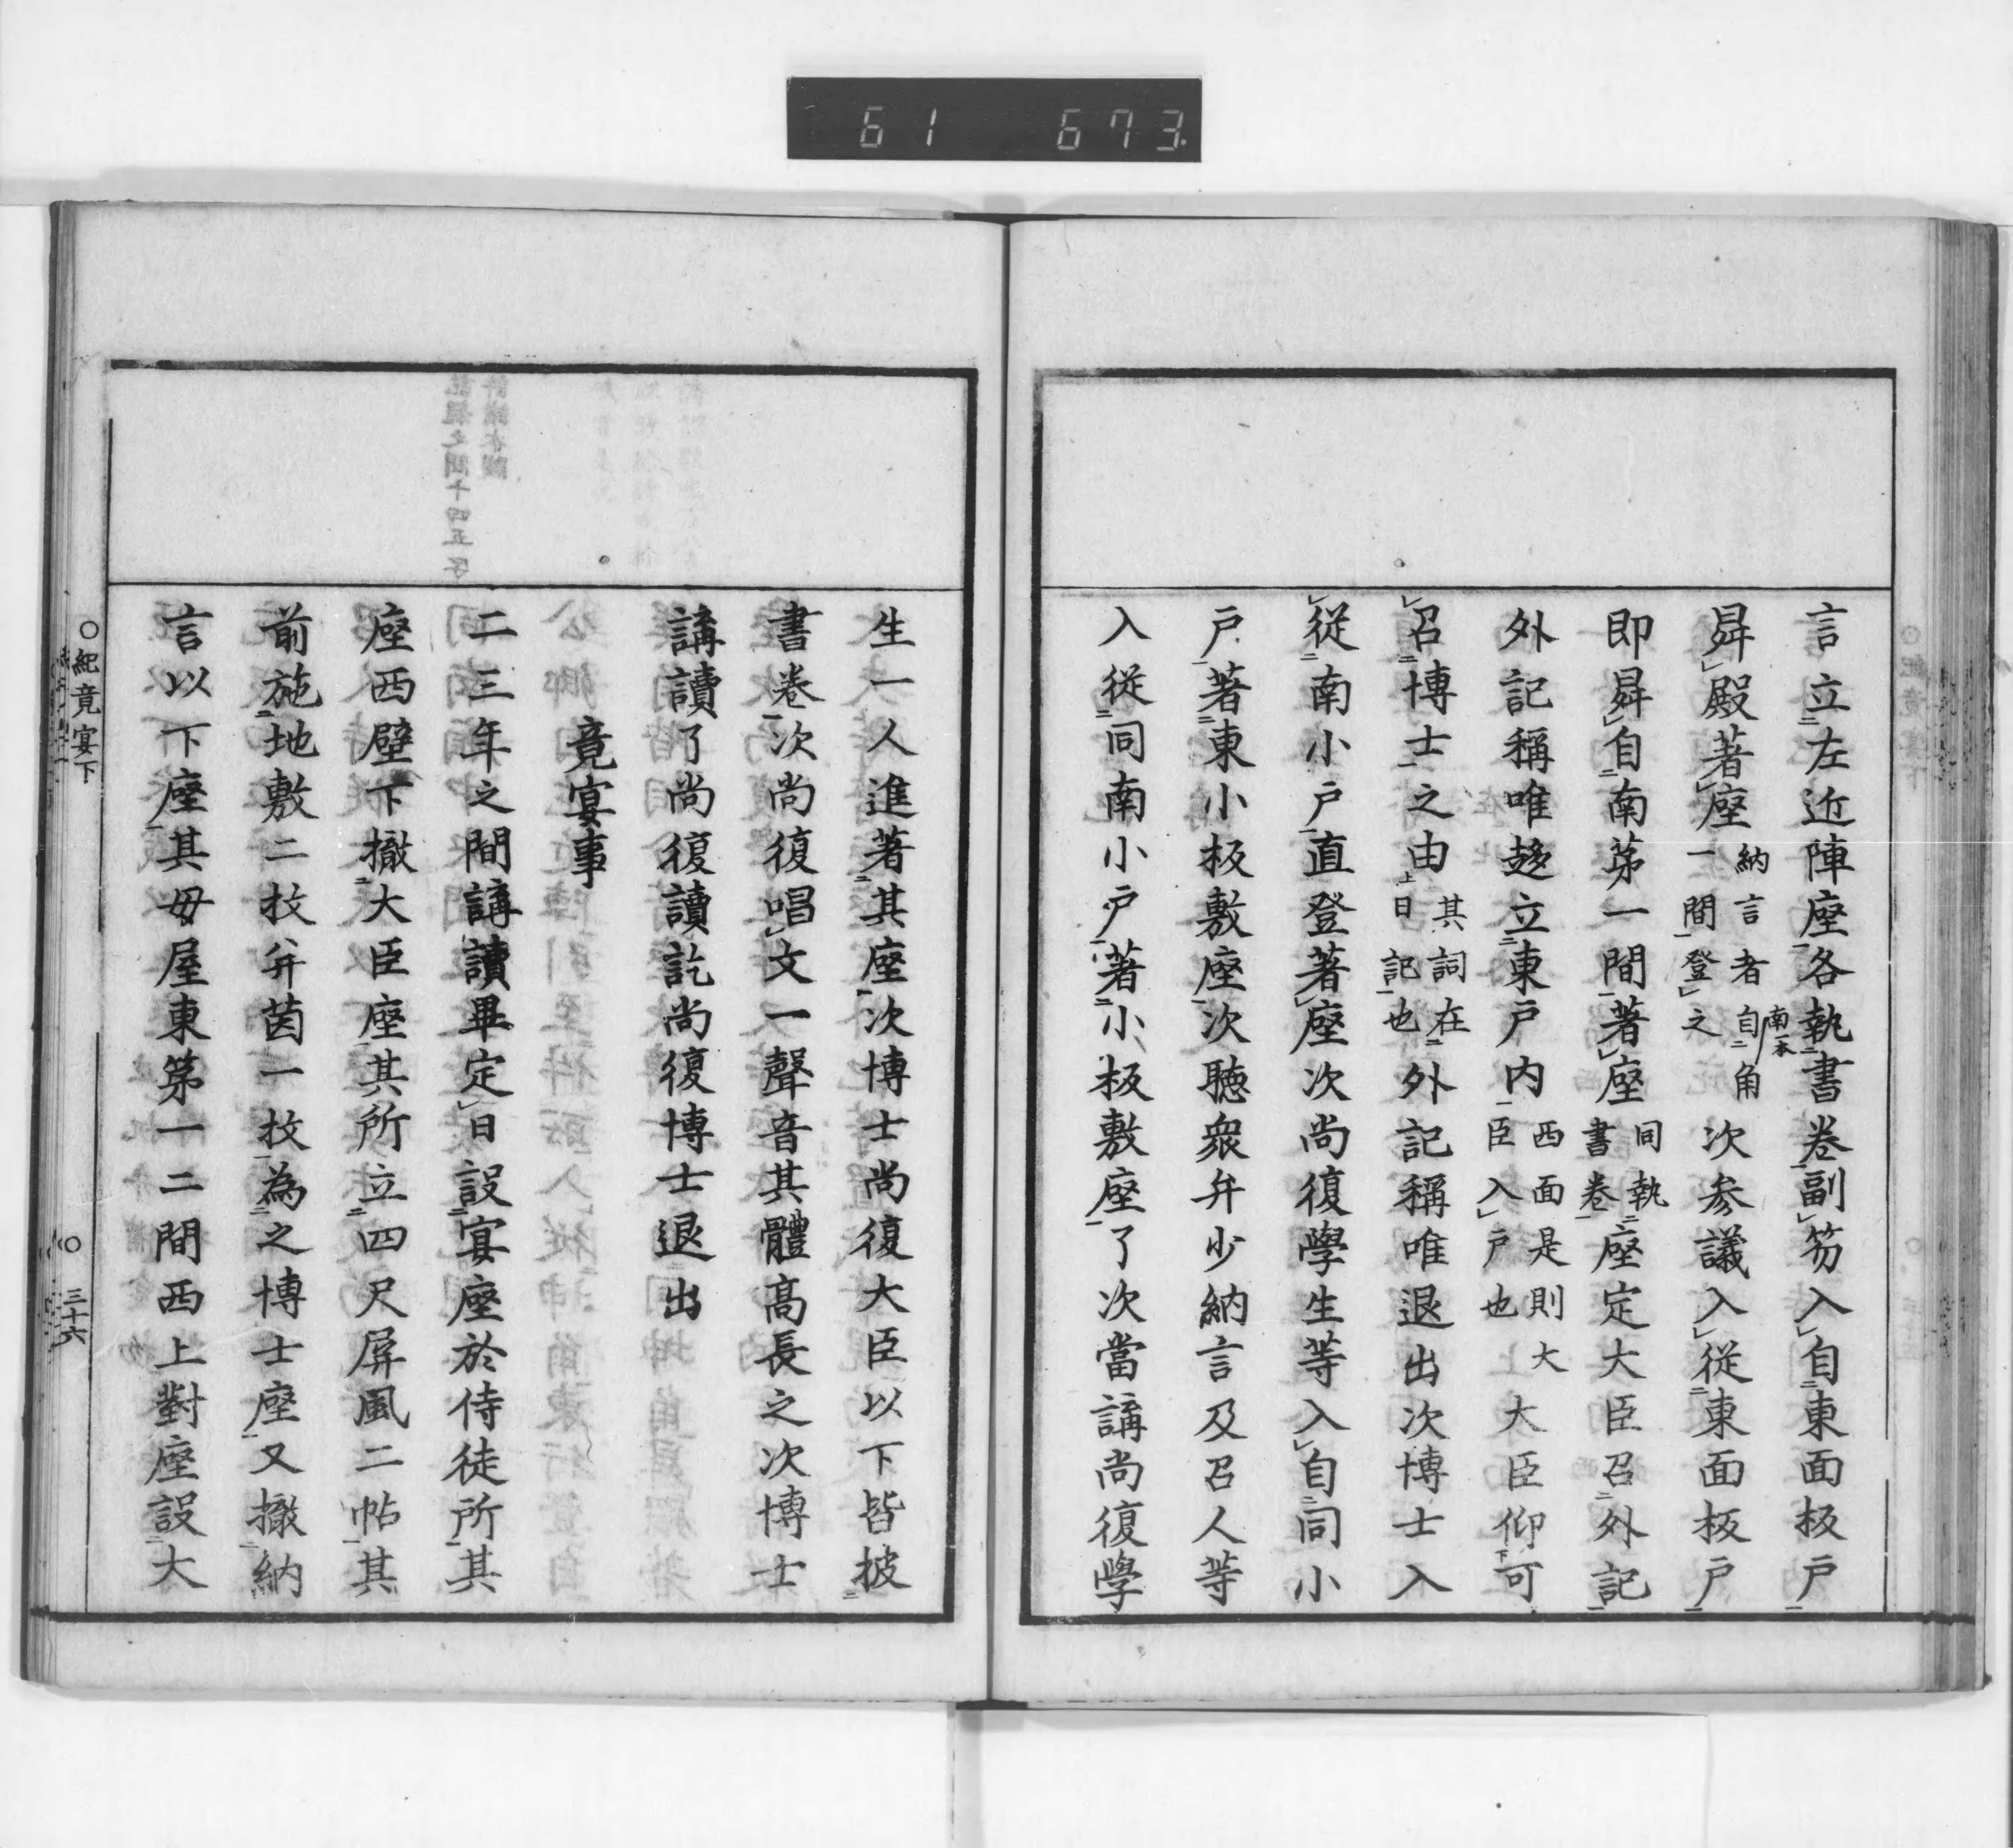 61 673
言立左近陣座各執書巻副笏入自東面板戸
舁殿著座納言者自角一間登之次参議入従東面板戸
南一本
即舁自南苐一間著座同執書巻座定大臣召外記
外記稱唯趍立東戸内西面是則大臣入戸也大臣仰可
召博士之由其詞在日記也外記稱唯退出次博士入
従南小戸直登著座次尚復學生等入自同小
戸著東小板敷座次聴衆弁少納言及召人等
入従同南小戸著小板敷座了次當講尚復學
生一人進著其座次博士尚復大臣以下皆披
書巻次尚復唱文一聲音其體髙長之次博士
講讀了尚復讀訖尚復博士退出
竟宴事
二三年之間講讀畢定日設宴座於侍徒所其
座西壁下撤大臣座其所立四尺屏風二帖其
前施地敷二枚弁茵一枚為之博士座又撤納
言以下座其毋屋東第一二間西上對座設大
○紀竟宴下
○三十六